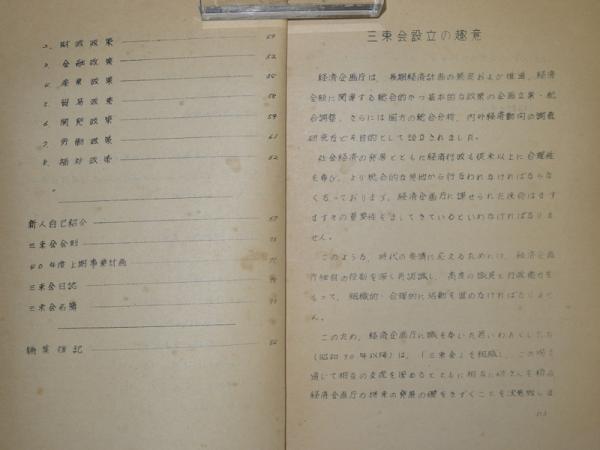 2. 財政政策 50
3. 金融政策 52
4. 産業政策 55
5. 貿易政策 58
6. 開発政策 59
7. 労働政策 61
8. 福祉政策 62
新人自己紹介 67
三東会会則
40年度上期事業計画
三東会日記
三東会名簿
編集後記
三東会設立の趣意
経済企画庁は、長期経済計画の策定および推進、経済
全般に関連する総合的かつ基本的な政策の企画立案・総
合調整、さらには国力の総合分析、内外経済動向の調査
研究などを目的として設立されました。
社会経済の発展とともに経済行政も従来以上に合理性
を尊び、より総合的な見地から行なわれなければならな
くなっております。経済企画庁に課せられた使命はます
ますその重要性をましてきているといわなければなりま
せん。
このような、時代の要請に応えるためには、経済企画
庁独自の役割を深く再認識し、高度の識見と行政能力を
もって、組織的・合理的に活動を進めなければなりませ
ん。
このため、経済企画庁に職を奉いた若いわれわれとしたち
(昭和30年以降)は、「三東会」を組織し、この場を
通じて相互の交流を深めるとともに相互に研さんを積み
経済企画庁の将来の発展の礎をきずくことを決意致しま